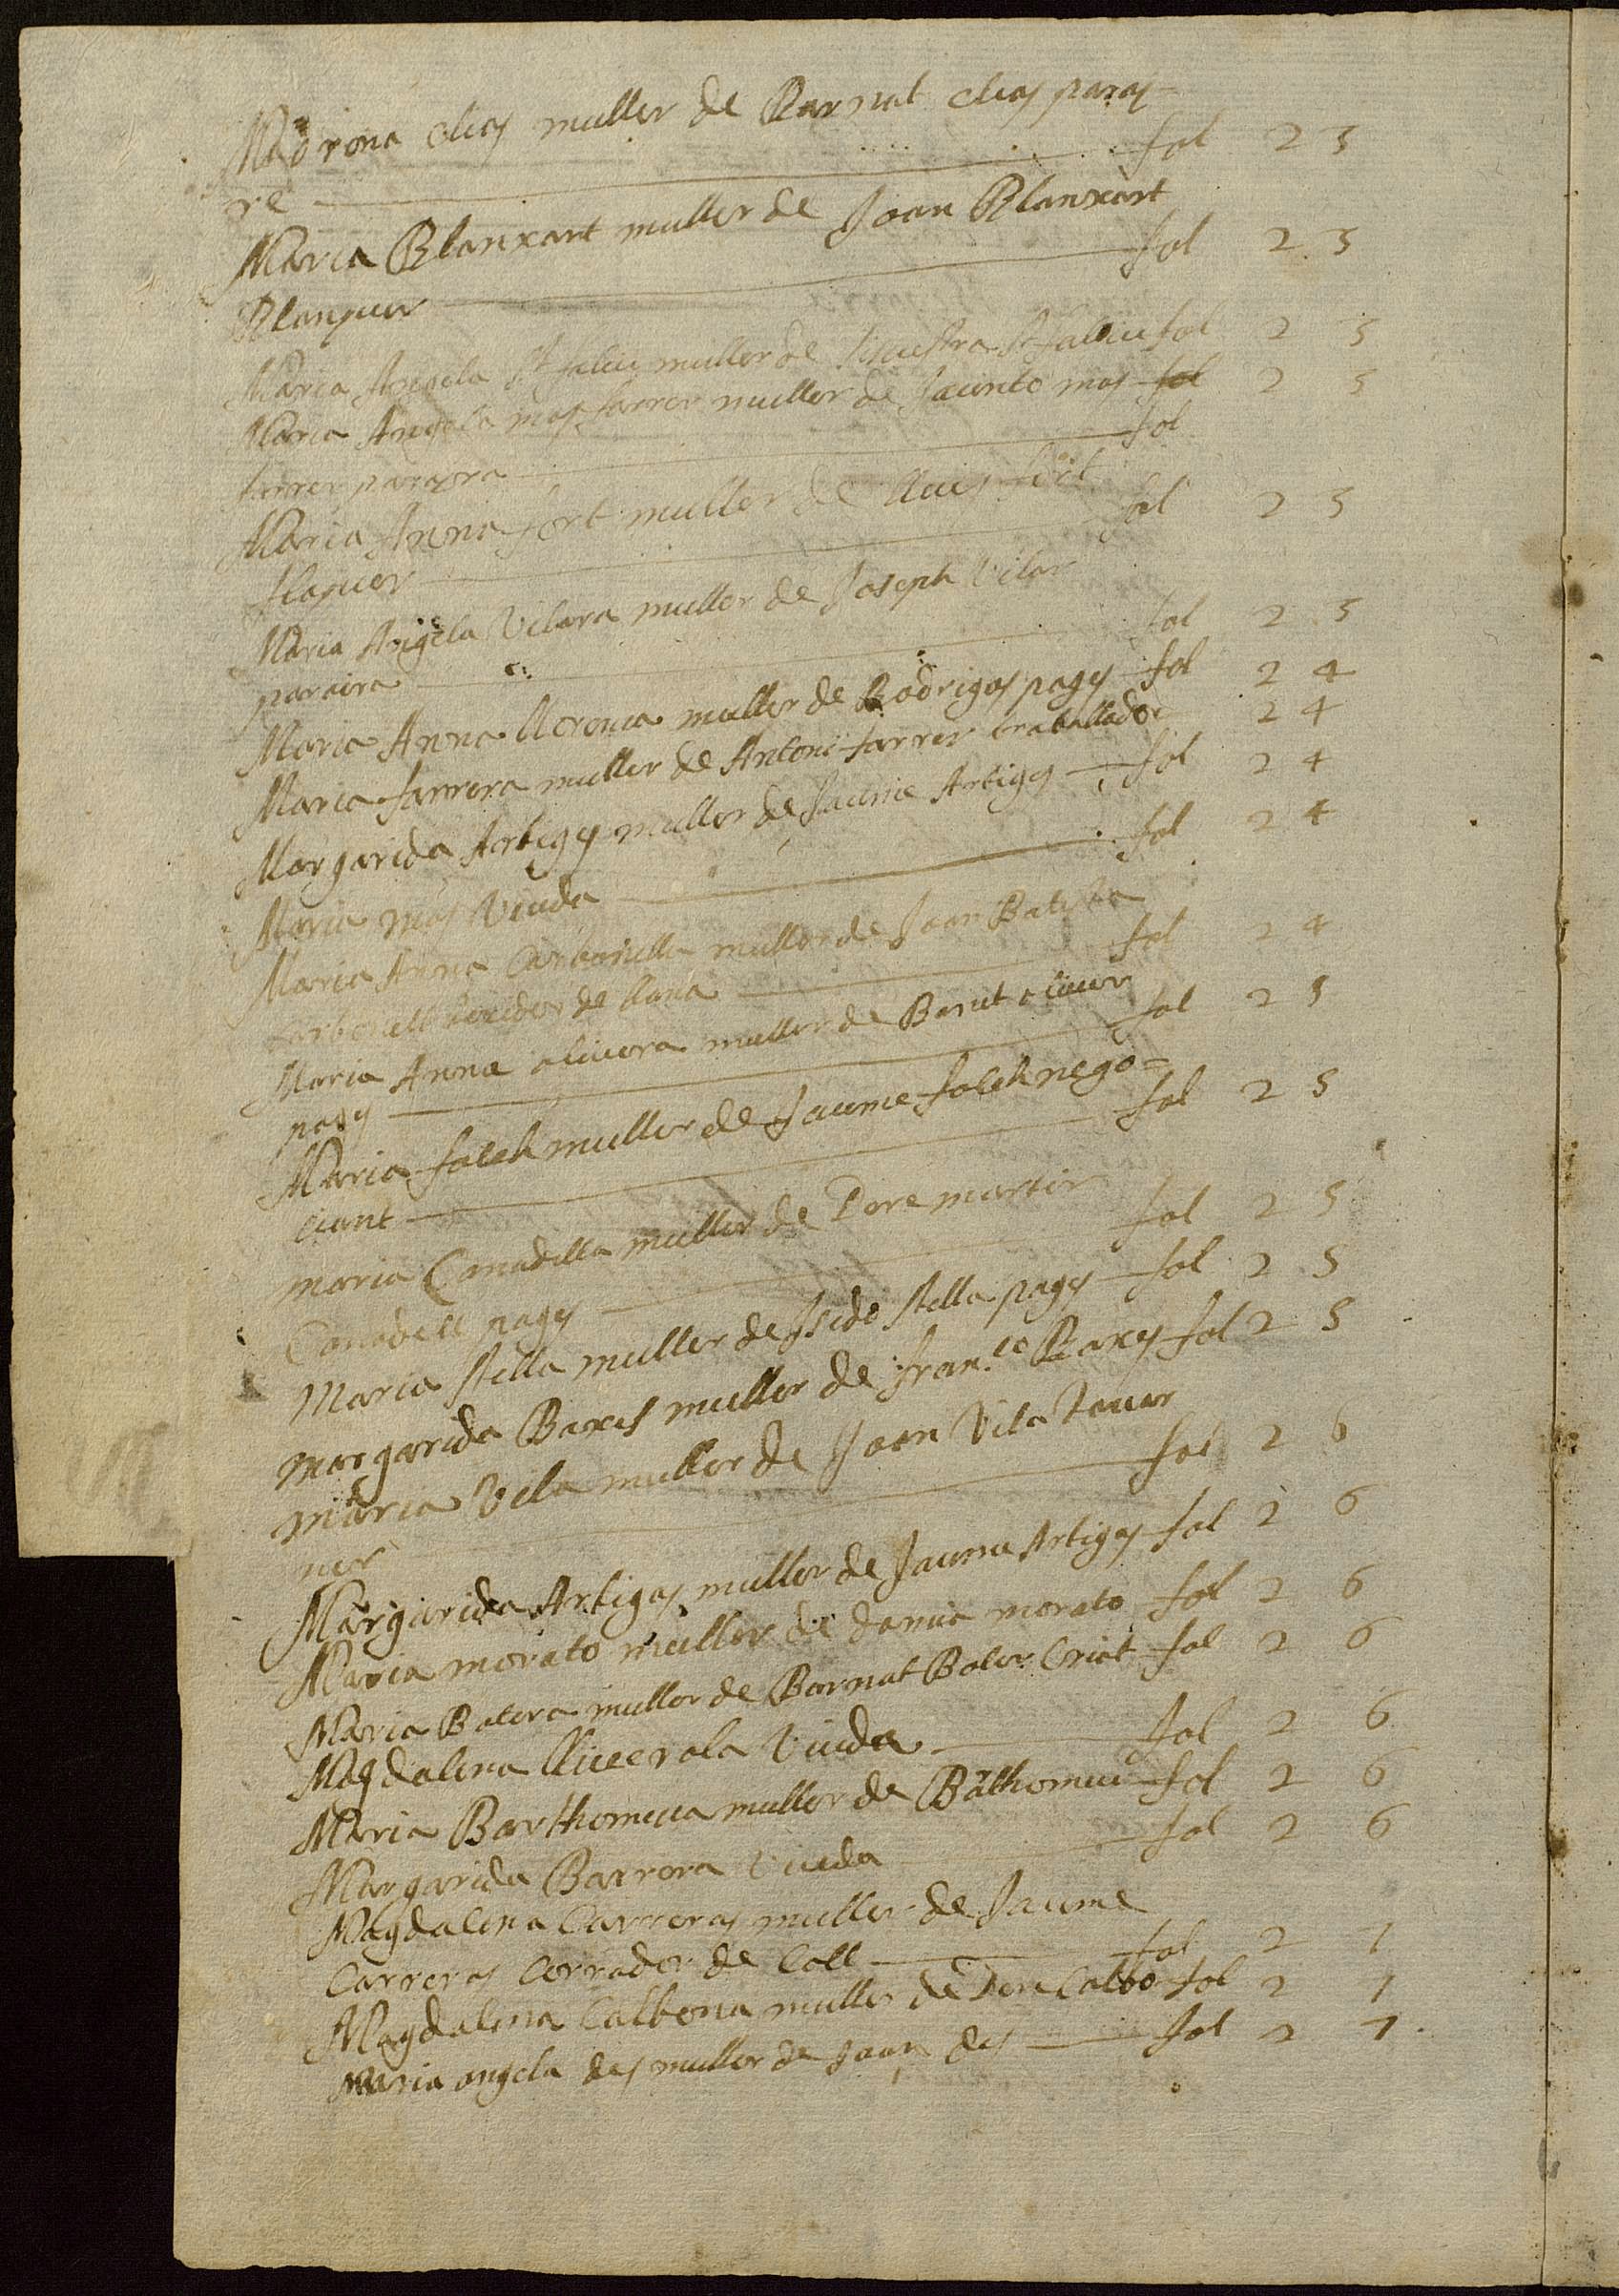 Madrona elias muller de Barnat elias paray=
re ——— fol 23
Maria Blanxart muller de Joan Blanxart
Blanquer ——— fol 23
Maria Angela St faliu muller de Siluestra St faliu fol 23
Maria Angela mas farrer muller de Jacinto mas fol 23
farrer parayra ——— fol
Maria Anna fort muller de lluis fort
flaquer ——— fol 23
Maria Angela Vilara muller de Joseph Vilar
paraira ——— fol 23
Maria Anna llorensa muller de Rodrigos pages fol 24
Maria farrera muller de Antoni farrer traballador 24
Margarida Artigas muller de Jaume Artigas — fol 24
Maria mas Viuda ——— fol 24
Maria Anna Carbonella muller de Joan Batista
Carbonell texidor de llana ——— fol 24
Maria Anna oliuera muller de Barnt oliuer
pages ——— fol 25
Maria folch muller de Jaume folch nego=
ciant ——— fol 25
maria Canadella muller de Pere martir
Canadell pages ——— fol 25
Maria stella muller de Isido stella pages — fol 25
margarida Baxes muller de fran.co Baxes fol 25
maria Vila muller de Joan Vila Tauer
ner ——— fol 26
Margarida Artigas muller de Jauma Artigas fol 26
Maria morato muller de damia morato fol 26
Maria Batera muller de Barnat Bater Criat fol 26
Magdalena lluserola Viuda ——— fol 26
Maria Barthomeua muller de Bathomeu fol 26
Margarida Barrera Viuda ——— fol 26
Magdalena Carreras muller de Jaume
Carreras Corrador de Coll ——— fol 27
Magdalena Calbona muller de Pere Calbo fol 27
Maria angela des muller de Joan des — fol 27